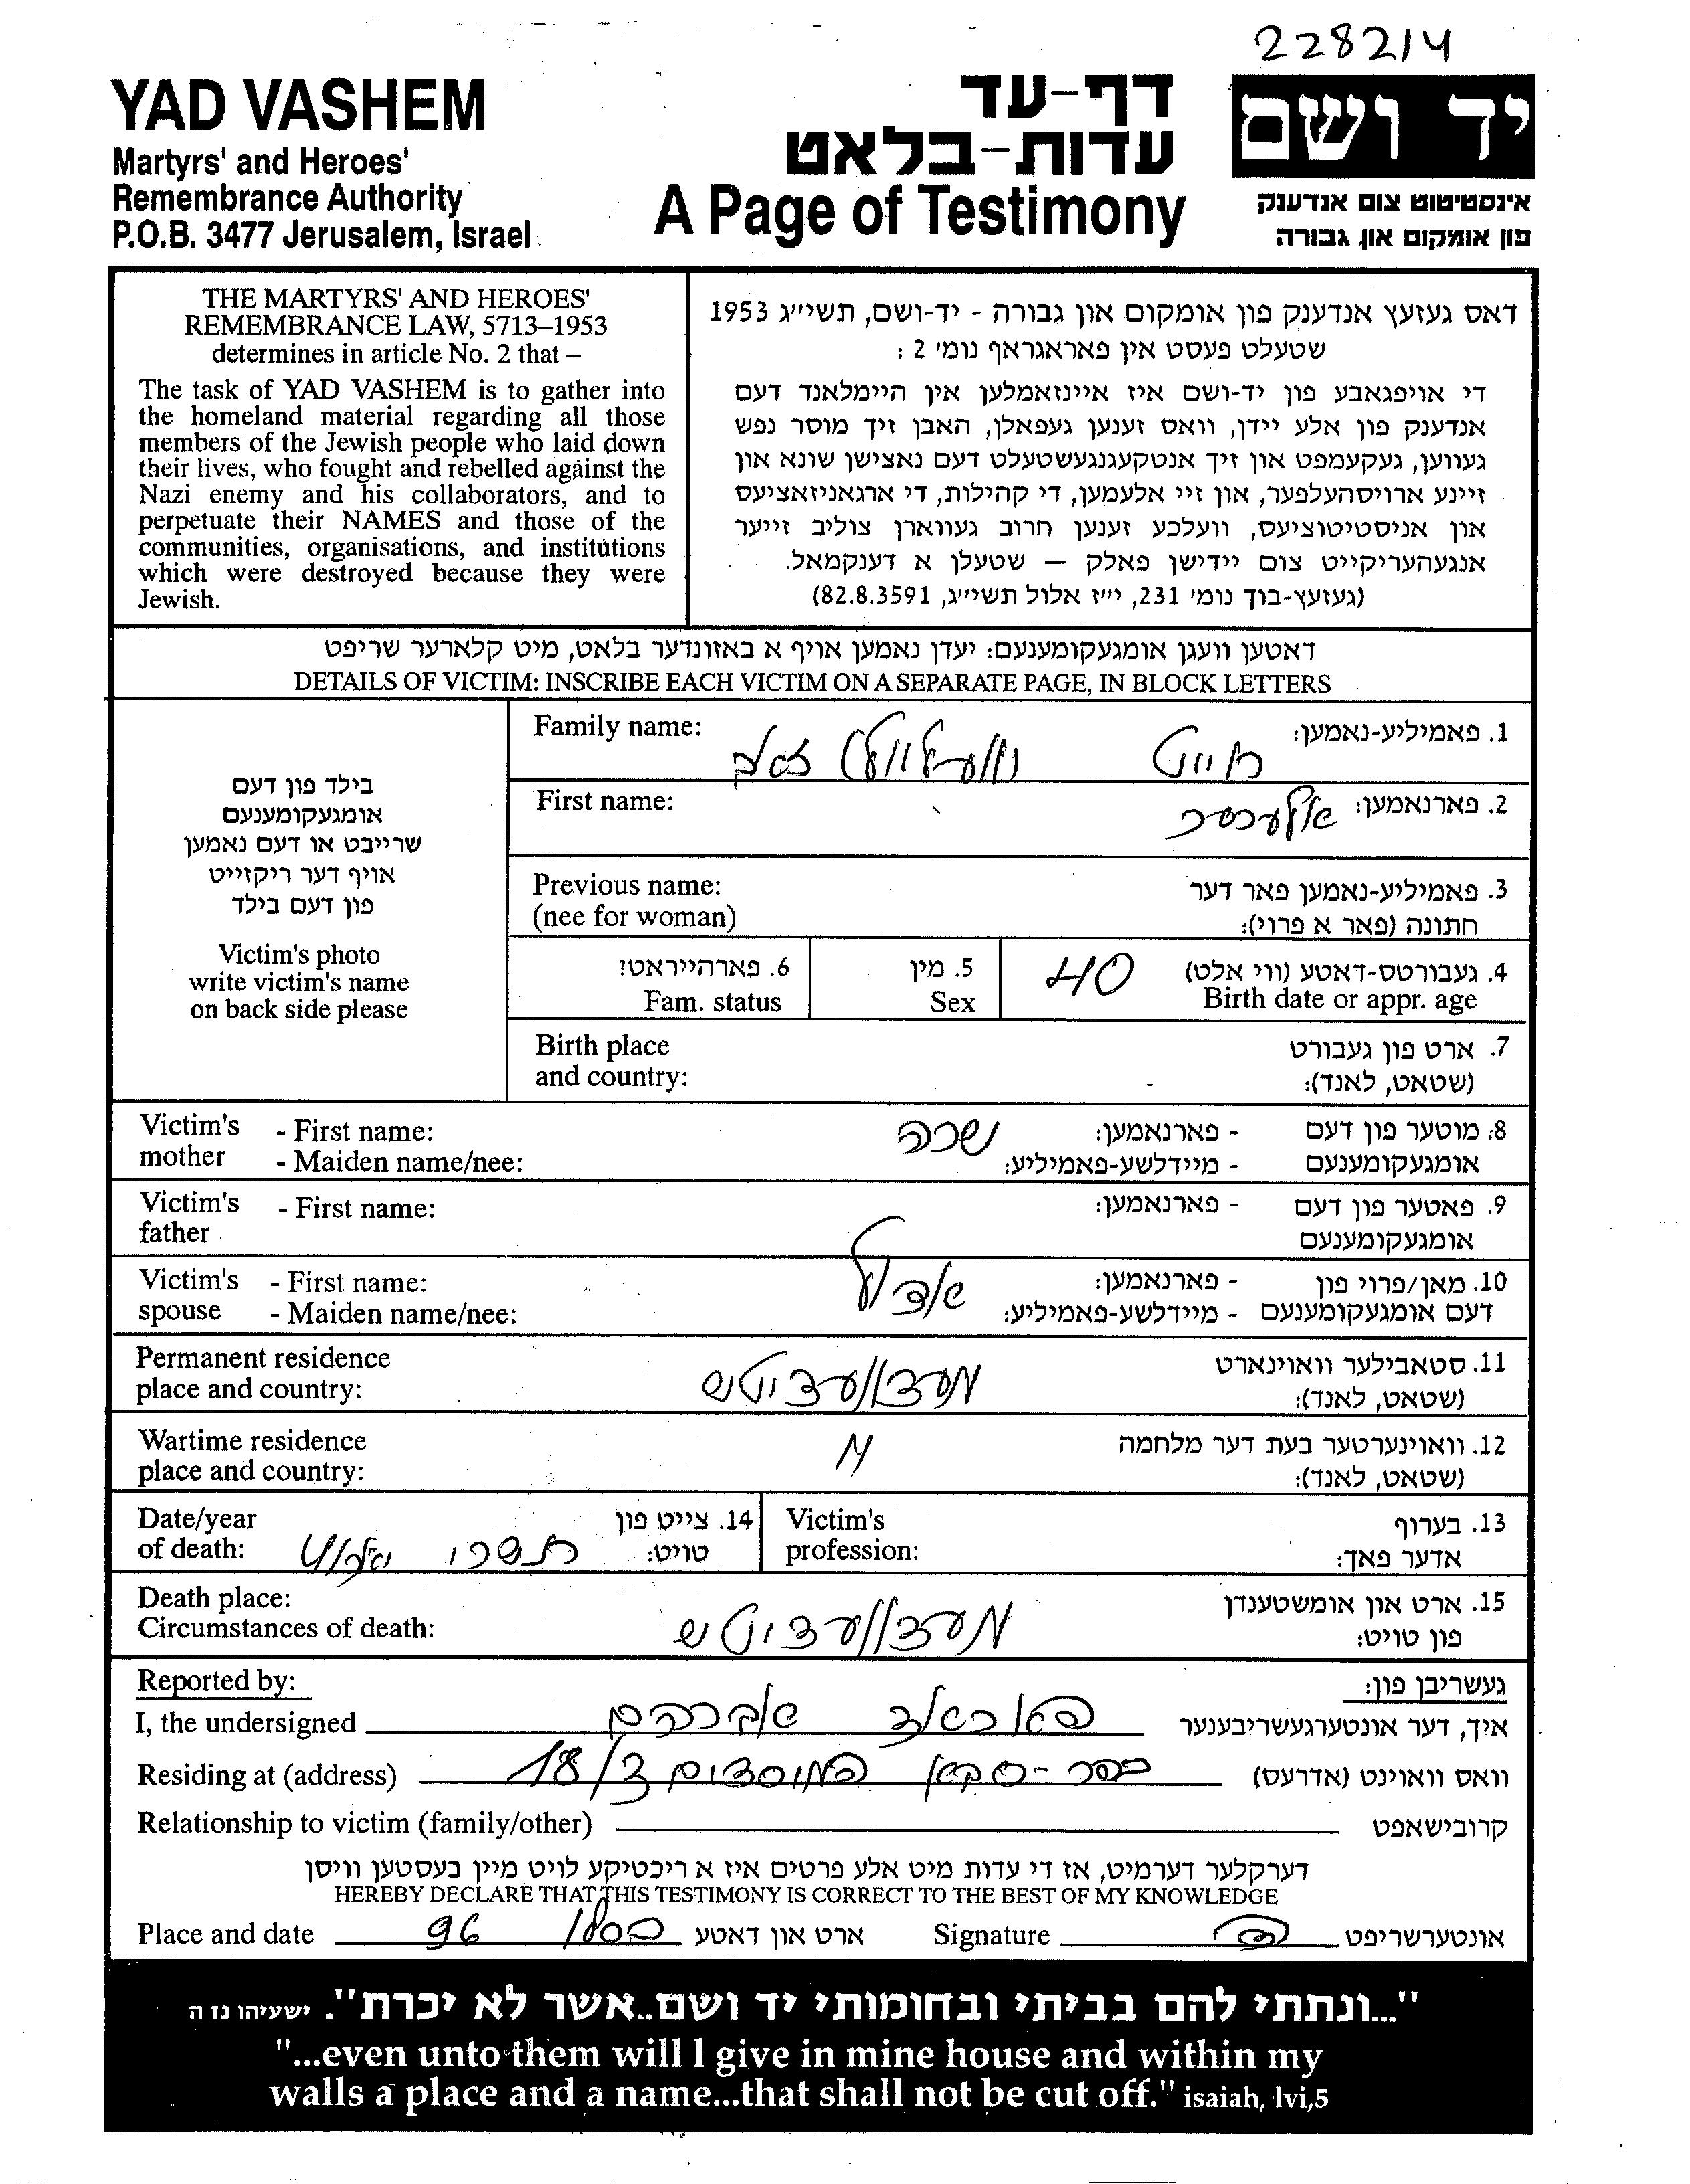 228214
YAD VASHEM
Martyrs' and Heroes'
Remembrance Authority
P.O.B. 3477 Jerusalem, Israel
דף-עד
עדות-בלאט
A Page of Testimony
יד ושם
אינסטיטוט צום אנדענק
פון אומקום און גבורה
THE MARTYRS' AND HEROES'
REMEMBRANCE LAW, 5713–1953
determines in article No. 2 that –
The task of YAD VASHEM is to gather into
the homeland material regarding all those
members of the Jewish people who laid down
their lives, who fought and rebelled against the
Nazi enemy and his collaborators, and to
perpetuate their NAMES and those of the
communities, organisations, and institutions
which were destroyed because they were
Jewish.
דאס געזעץ אנדענק פון אומקום און גבורה - יד-ושם, תשי״ג 1953
שטעלט פעסט אין פאראגראף נומ׳ 2 :
די אויפגאבע פון יד-ושם איז איינזאמלען אין היימלאנד דעם
אנדענק פון אלע יידן, וואס זענען געפאלן, האבן זיך מוסר נפש
געווען, געקעמפט און זיך אנטקעגנגעשטעלט דעם נאצישן שונא און
זיינע ארויסהעלפער, און זיי אלעמען, די קהילות, די ארגאניזאציעס
און אניסטיטוציעס, וועלכע זענען חרוב געווארן צוליב זייער
אנגעהעריקייט צום יידישן פאלק – שטעלן א דענקמאל.
(געזעץ-בוך נומ׳ 231, י״ז אלול תשי״ג, 82.8.3591)
דאטען וועגן אומגעקומענעם: יעדן נאמען אויף א באזונדער בלאט, מיט קלארער שריפט
DETAILS OF VICTIM: INSCRIBE EACH VICTIM ON A SEPARATE PAGE, IN BLOCK LETTERS
בילד פון דעם
אומגעקומענעם
שרייבט או דעם נאמען
אויף דער ריקזייט
פון דעם בילד
Victim's photo
write victim's name
on back side please
Family name:
1. פאמיליע-נאמען:
First name:
2. פארנאמען:
Previous name:
(nee for woman)
3. פאמיליע-נאמען פאר דער
חתונה (פאר א פרוי):
6. פארהייראט?
Fam. status
5. מין
Sex
40
4. געבורטס-דאטע (ווי אלט)
Birth date or appr. age
Birth place
and country:
7. ארט פון געבורט
(שטאט, לאנד):
Victim's mother - First name:
- Maiden name/nee:
שרה
- פארנאמען:
- מיידלשע-פאמיליע:
8. מוטער פון דעם
אומגעקומענעם
Victim's father - First name:
- פארנאמען:
9. פאטער פון דעם
אומגעקומענעם
Victim's spouse - First name:
- Maiden name/nee:
אדעל
- פארנאמען:
- מיידלשע-פאמיליע:
10. מאן/פרוי פון
דעם אומגעקומענעם
Permanent residence
place and country:
מעזשעריטש
11. סטאבילער וואוינארט
(שטאט, לאנד):
Wartime residence
place and country:
12. וואוינערטער בעת דער מלחמה
(שטאט, לאנד):
Date/year
of death:
תשרי
14. צייט פון
טויט:
Victim's
profession:
13. בערוף
אדער פאך:
Death place:
Circumstances of death:
15. ארט און אומשטענדן
פון טויט:
Reported by:
געשריבן פון:
I, the undersigned
אברהם
איך, דער אונטערגעשריבענער
Residing at (address)
כפר-סבא המוסדים 18/3
וואס וואוינט (אדרעס)
Relationship to victim (family/other)
קרובישאפט
דערקלער דערמיט, אז די עדות מיט אלע פרטים איז א ריכטיקע לויט מיין בעסטען וויסן
HEREBY DECLARE THAT THIS TESTIMONY IS CORRECT TO THE BEST OF MY KNOWLEDGE
Place and date
96
ארט און דאטע
Signature
אונטערשריפט
"...ונתתי להם בביתי ובחומותי יד ושם..אשר לא יכרת". ישעיהו נז ה
"...even unto them will I give in mine house and within my
walls a place and a name...that shall not be cut off." isaiah, lvi,5